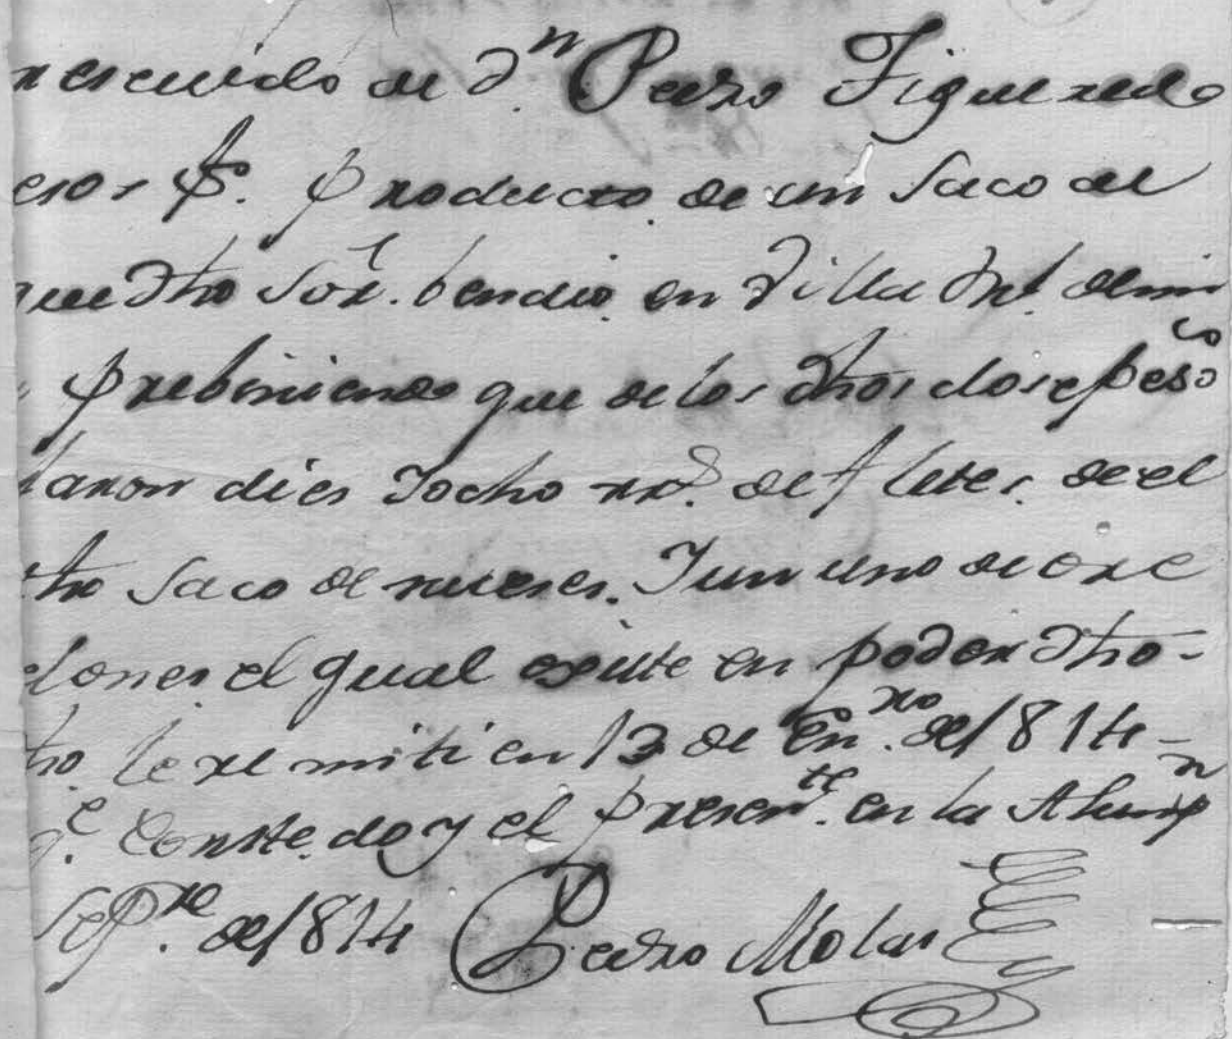 rescivido de Dn. Pedro Figueredo
esos fs. producto de un saco de
que dho Sor. bendio en Villa Rl. de mi
prebiniendo que de los dhos dose pesos
taron dies y ocho rrs. de fletes de el
dho saco de nueses. Y un uno de ore
elones el qual existe en poder dho-
dho le remiti en 13 de Enro. del 814-
qe. conste doy el presente. en la Asumpn
Sepre. del 814 Pedro Molas